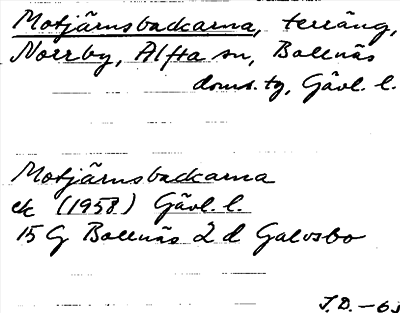 Motjärnsbackarna, terräng,
Norrby, Alfta sn, Bollnäs
doms. tg, Gävl. l.
Motjärnsbackarna
ek (1958) Gävl. l.
15 G Bollnäs 2 d Galvsbo
J.D. -63